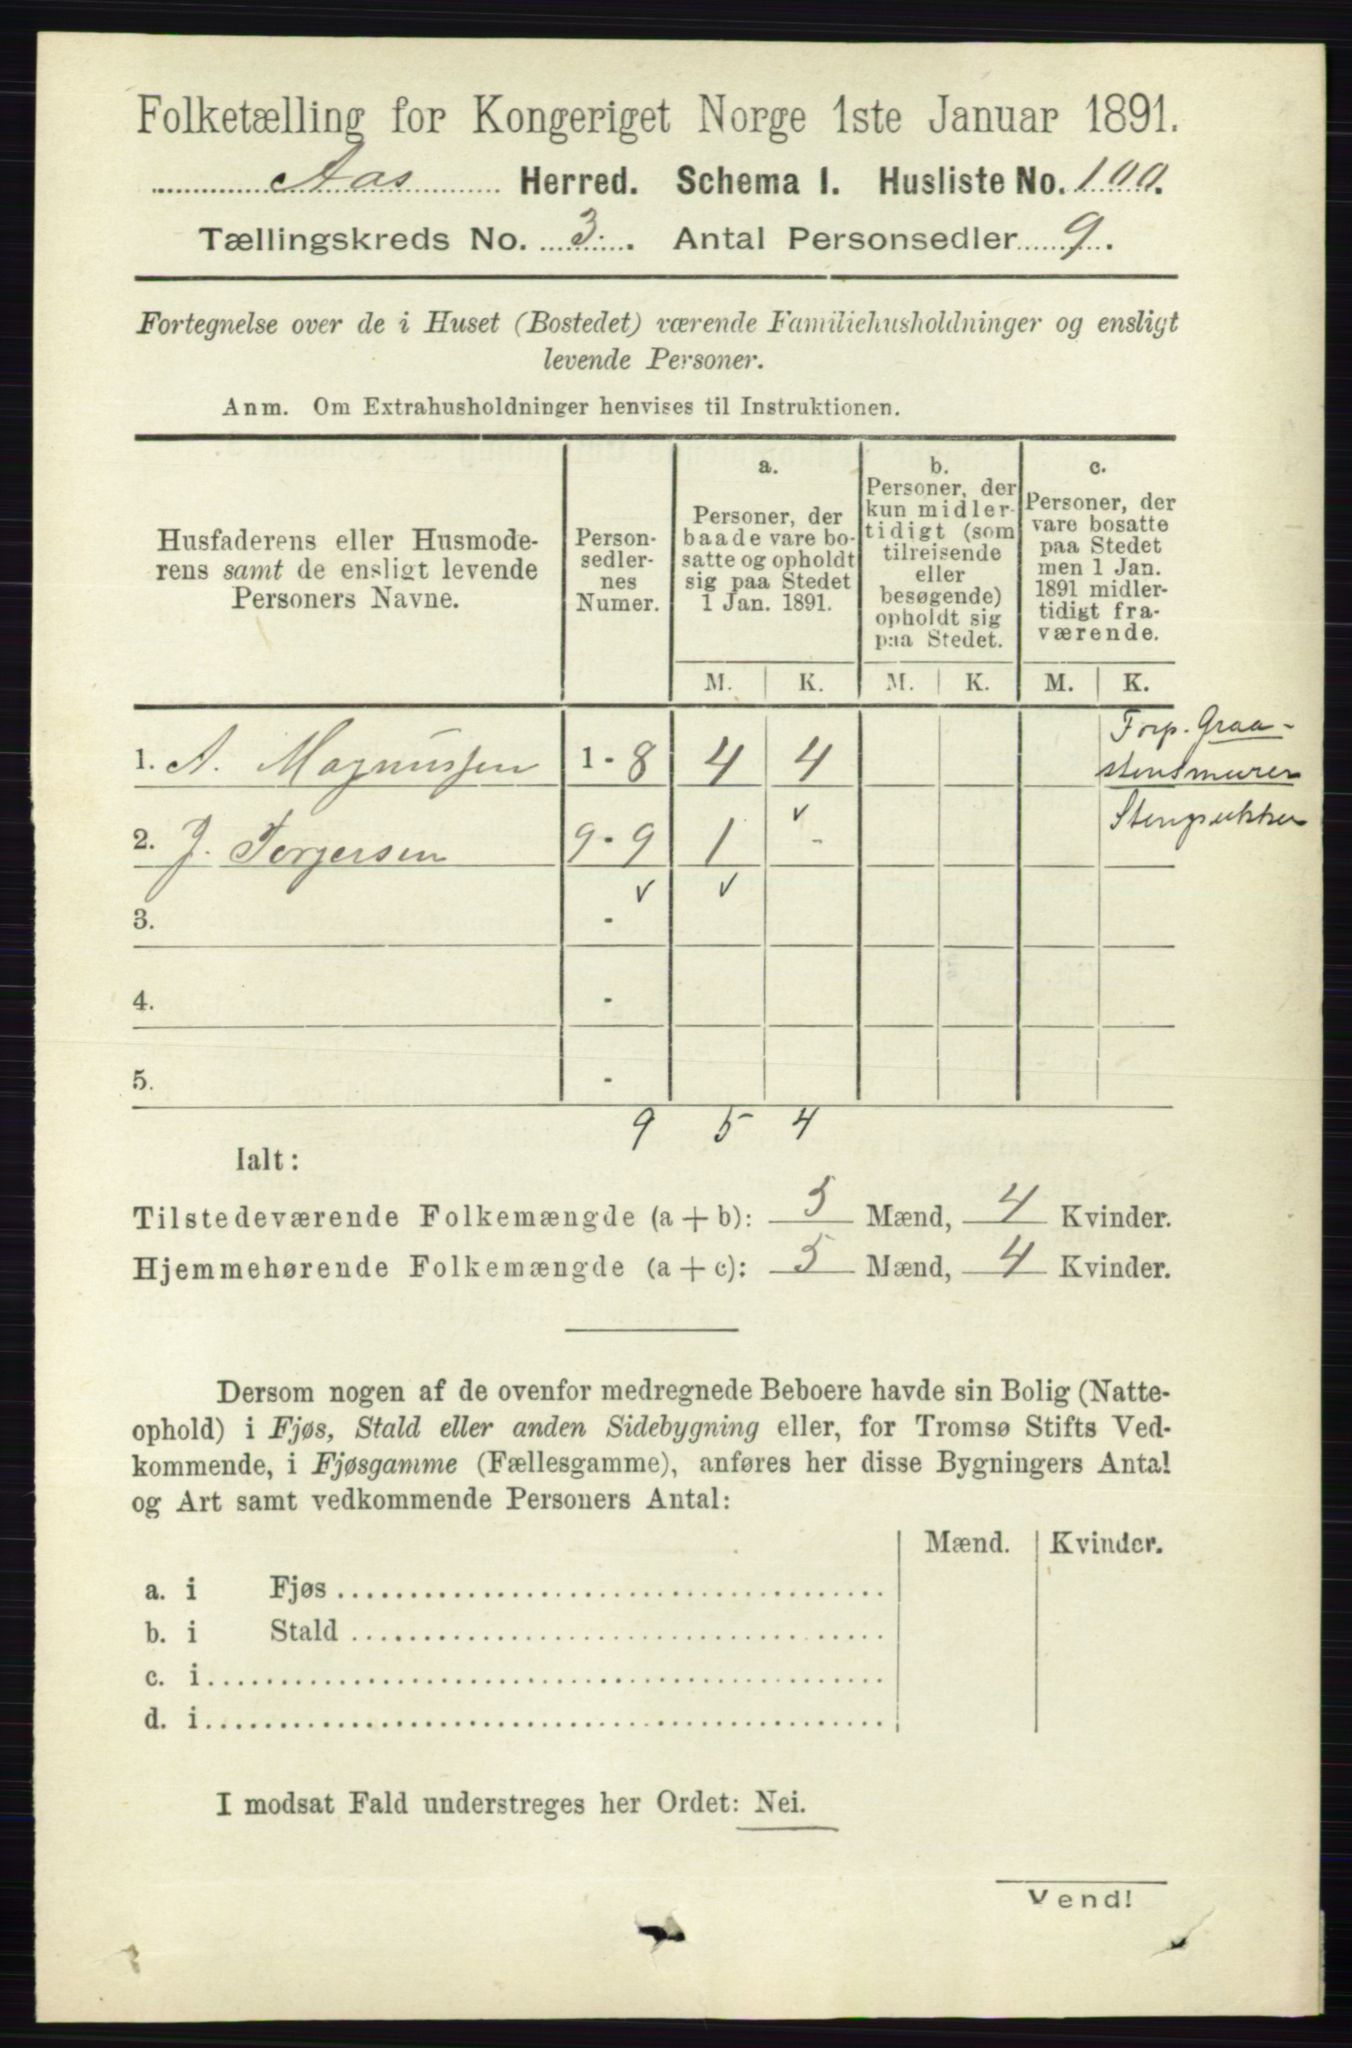 Folketælling for Kongeriget Norge 1ste Januar 1891.
Aas Herred. Schema I. Husliste No. 100.
Tællingskreds No. 3. Antal Personsedler 9.
Fortegnelse over de i Huset (Bostedet) værende Familiehusholdninger og ensligt
levende Personer.
Anm. Om Extrahusholdninger henvises til Instruktionen.
Husfaderens eller Husmode-
rens samt de ensligt levende
Personers Navne.
Person-
sedler-
nes
Numer.
a.
Personer, der
baade vare bo-
satte og opholdt
sig paa Stedet
1 Jan. 1891.
b.
Personer, der
kun midler-
tidigt (som
tilreisende
eller
besøgende)
opholdt sig
paa Stedet.
c.
Personer, der
vare bosatte
paa Stedet
men 1 Jan.
1891 midler-
tidigt fra-
værende.
M. K. M. K. M. K.
1. A. Magnussen 1-8 4 4 Forp. Graa-
stensmurer
2. J. Torgersen 9-9 1 -
3. -
4. -
5. -
9 5 4
Ialt:
Tilstedeværende Folkemængde (a + b): 5 Mænd, 4 Kvinder.
Hjemmehørende Folkemængde (a + c): 5 Mænd, 4 Kvinder.
Dersom nogen af de ovenfor medregnede Beboere havde sin Bolig (Natte-
ophold) i Fjøs, Stald eller anden Sidebygning eller, for Tromsø Stifts Ved-
kommende, i Fjøsgamme (Fællesgamme), anføres her disse Bygningers Antal
og Art samt vedkommende Personers Antal:
Mænd. Kvinder.
a. i Fjøs
b. i Stald
c. i
d. i
I modsat Fald understreges her Ordet: Nei.
Vend!